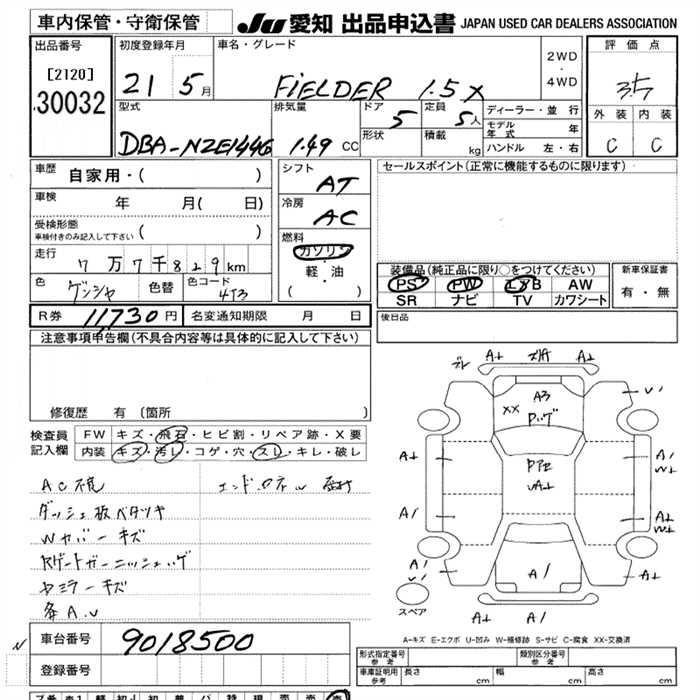 車内保管・守衛保管
JU 愛知 出品申込書 JAPAN USED CAR DEALERS ASSOCIATION
出品番号
[2120]
30032
初度登録年月
21 5月
車名・グレード
FIELDER 1.5X
2WD
・
4WD
評価点
3.5
外装 内装
C C
型式
DBA-NZE144G
排気量
1.49 CC
ドア
5
定員
5人
形状
積載
kg
ディーラー・並行
モデル年式 年
ハンドル 左・右
車歴
自家用・( )
車検
年 月( 日)
受検形態
車検付きのみ記入して下さい ( )
走行
7万7千829km
色
色替
色コード
4T3
R券 11730円
名変通知期限 月 日
シフト
AT
冷房
AC
燃料
ガソリン
・
軽・油
( )
セールスポイント(正常に機能するものに限ります)
装備品(純正品に限り○をつけてください)
PS PW AW
SR ナビ TV カワシート
新車保証書
有・無
後日品
注意事項申告欄(不具合内容等は具体的に記入して下さい)
修復歴 有 (箇所 )
検査員記入欄
FW キズ・飛石・ヒビ割・リペア跡・X要
内装 キズ・汚レ・コゲ・穴・スレ・キレ・破レ
ダッシュ板ベタツキ
Wカバーキズ
キズ
A.U
A+ A+
A3
XX
A+
A/
A+
W+
A+
W+
A/
A+
A+ A/
スペア
A-キズ E-エクボ U-凹み W-補修跡 S-サビ C-腐食 XX-交換済
車台番号
9018500
登録番号
形式指定番号 参考
類別区分番号 参考
車庫証明用 参考
長さ cm
幅 cm
高さ cm